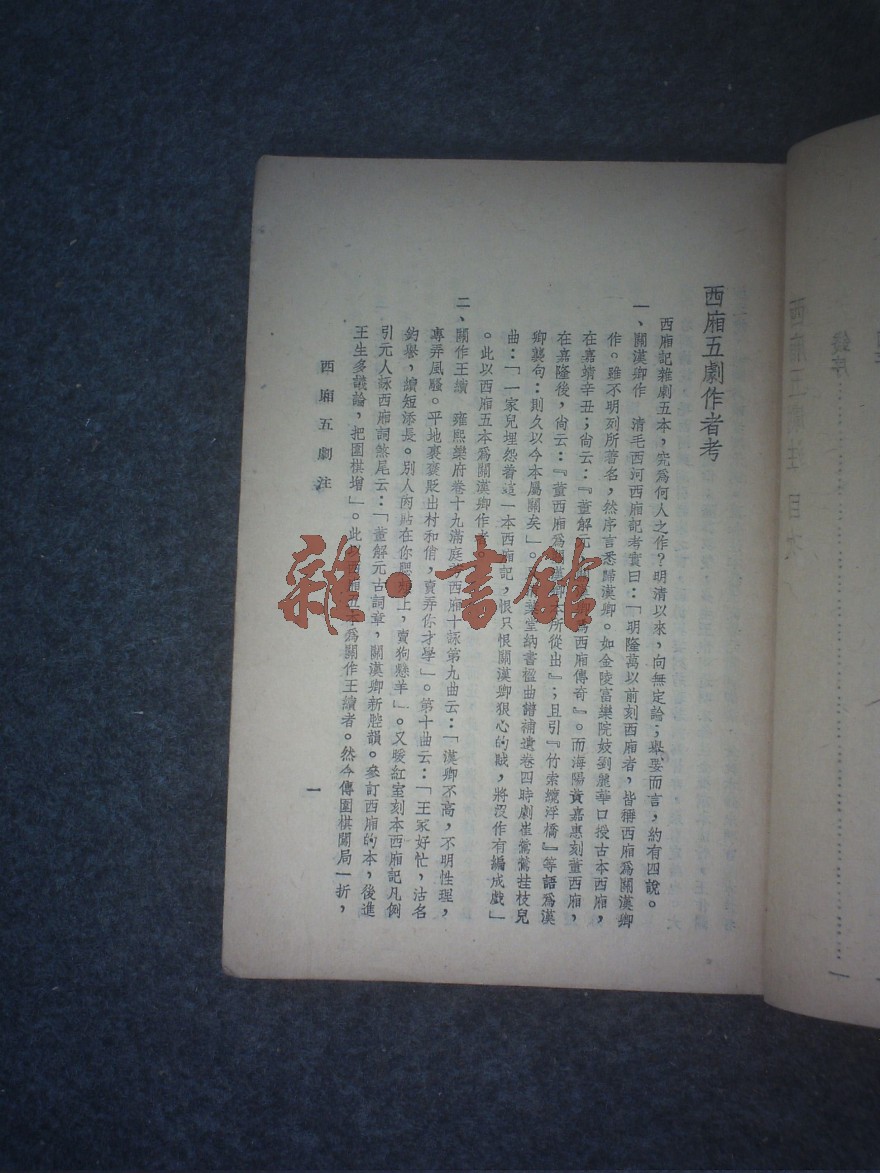 西廂五劇作者考
西廂記雜劇五本，究爲何人之作？明清以來，向無定論；舉要而言，約有四說。
一、關漢卿作　清毛西河西廂記考實曰：「明隆萬以前刻西廂者，皆稱西廂爲關漢卿
作。雖不明列所著名，然序言悉歸漢卿。如金陵富樂院妓劉麗華口授古本西廂，
在嘉靖辛丑；尙云：『董解元　爲西廂傳奇』。而海陽黃嘉惠刻董西廂，
在嘉隆後，尙云：『董西廂爲關漢卿本所從出』；且引『竹索纜浮橋』等語爲漢
卿襲句：則久以今本屬關矣」。　葉堂納書楹曲譜補遺卷四時劇崔鶯鶯挂枝兒
曲：「一家兒埋怨着這一本西廂記，恨只恨關漢卿狠心的賊，將沒作有編成戲」
。此以西廂五本爲關漢卿作者。
二、關作王續　雍熙樂府卷十九滿庭芳西廂十詠第九曲云：「漢卿不高，不明性理，
專弄風騷。平地裏褒貶出村和俏，賣弄你才學」。第十曲云：「王家好忙，沽名
釣譽，續短添長。別人肉貼在你腮　上，賣狗懸羊」。又暖紅室刻本西廂記凡例
引元人詠西廂詞煞尾云：「董解元古詞章，關漢卿新腔韻。參訂西廂的本，後進
王生多議論，把圍棋增」。此以西廂五本爲關作王續者。然今傳圍棋闖局一折，
西廂五劇注
一
雜·書館